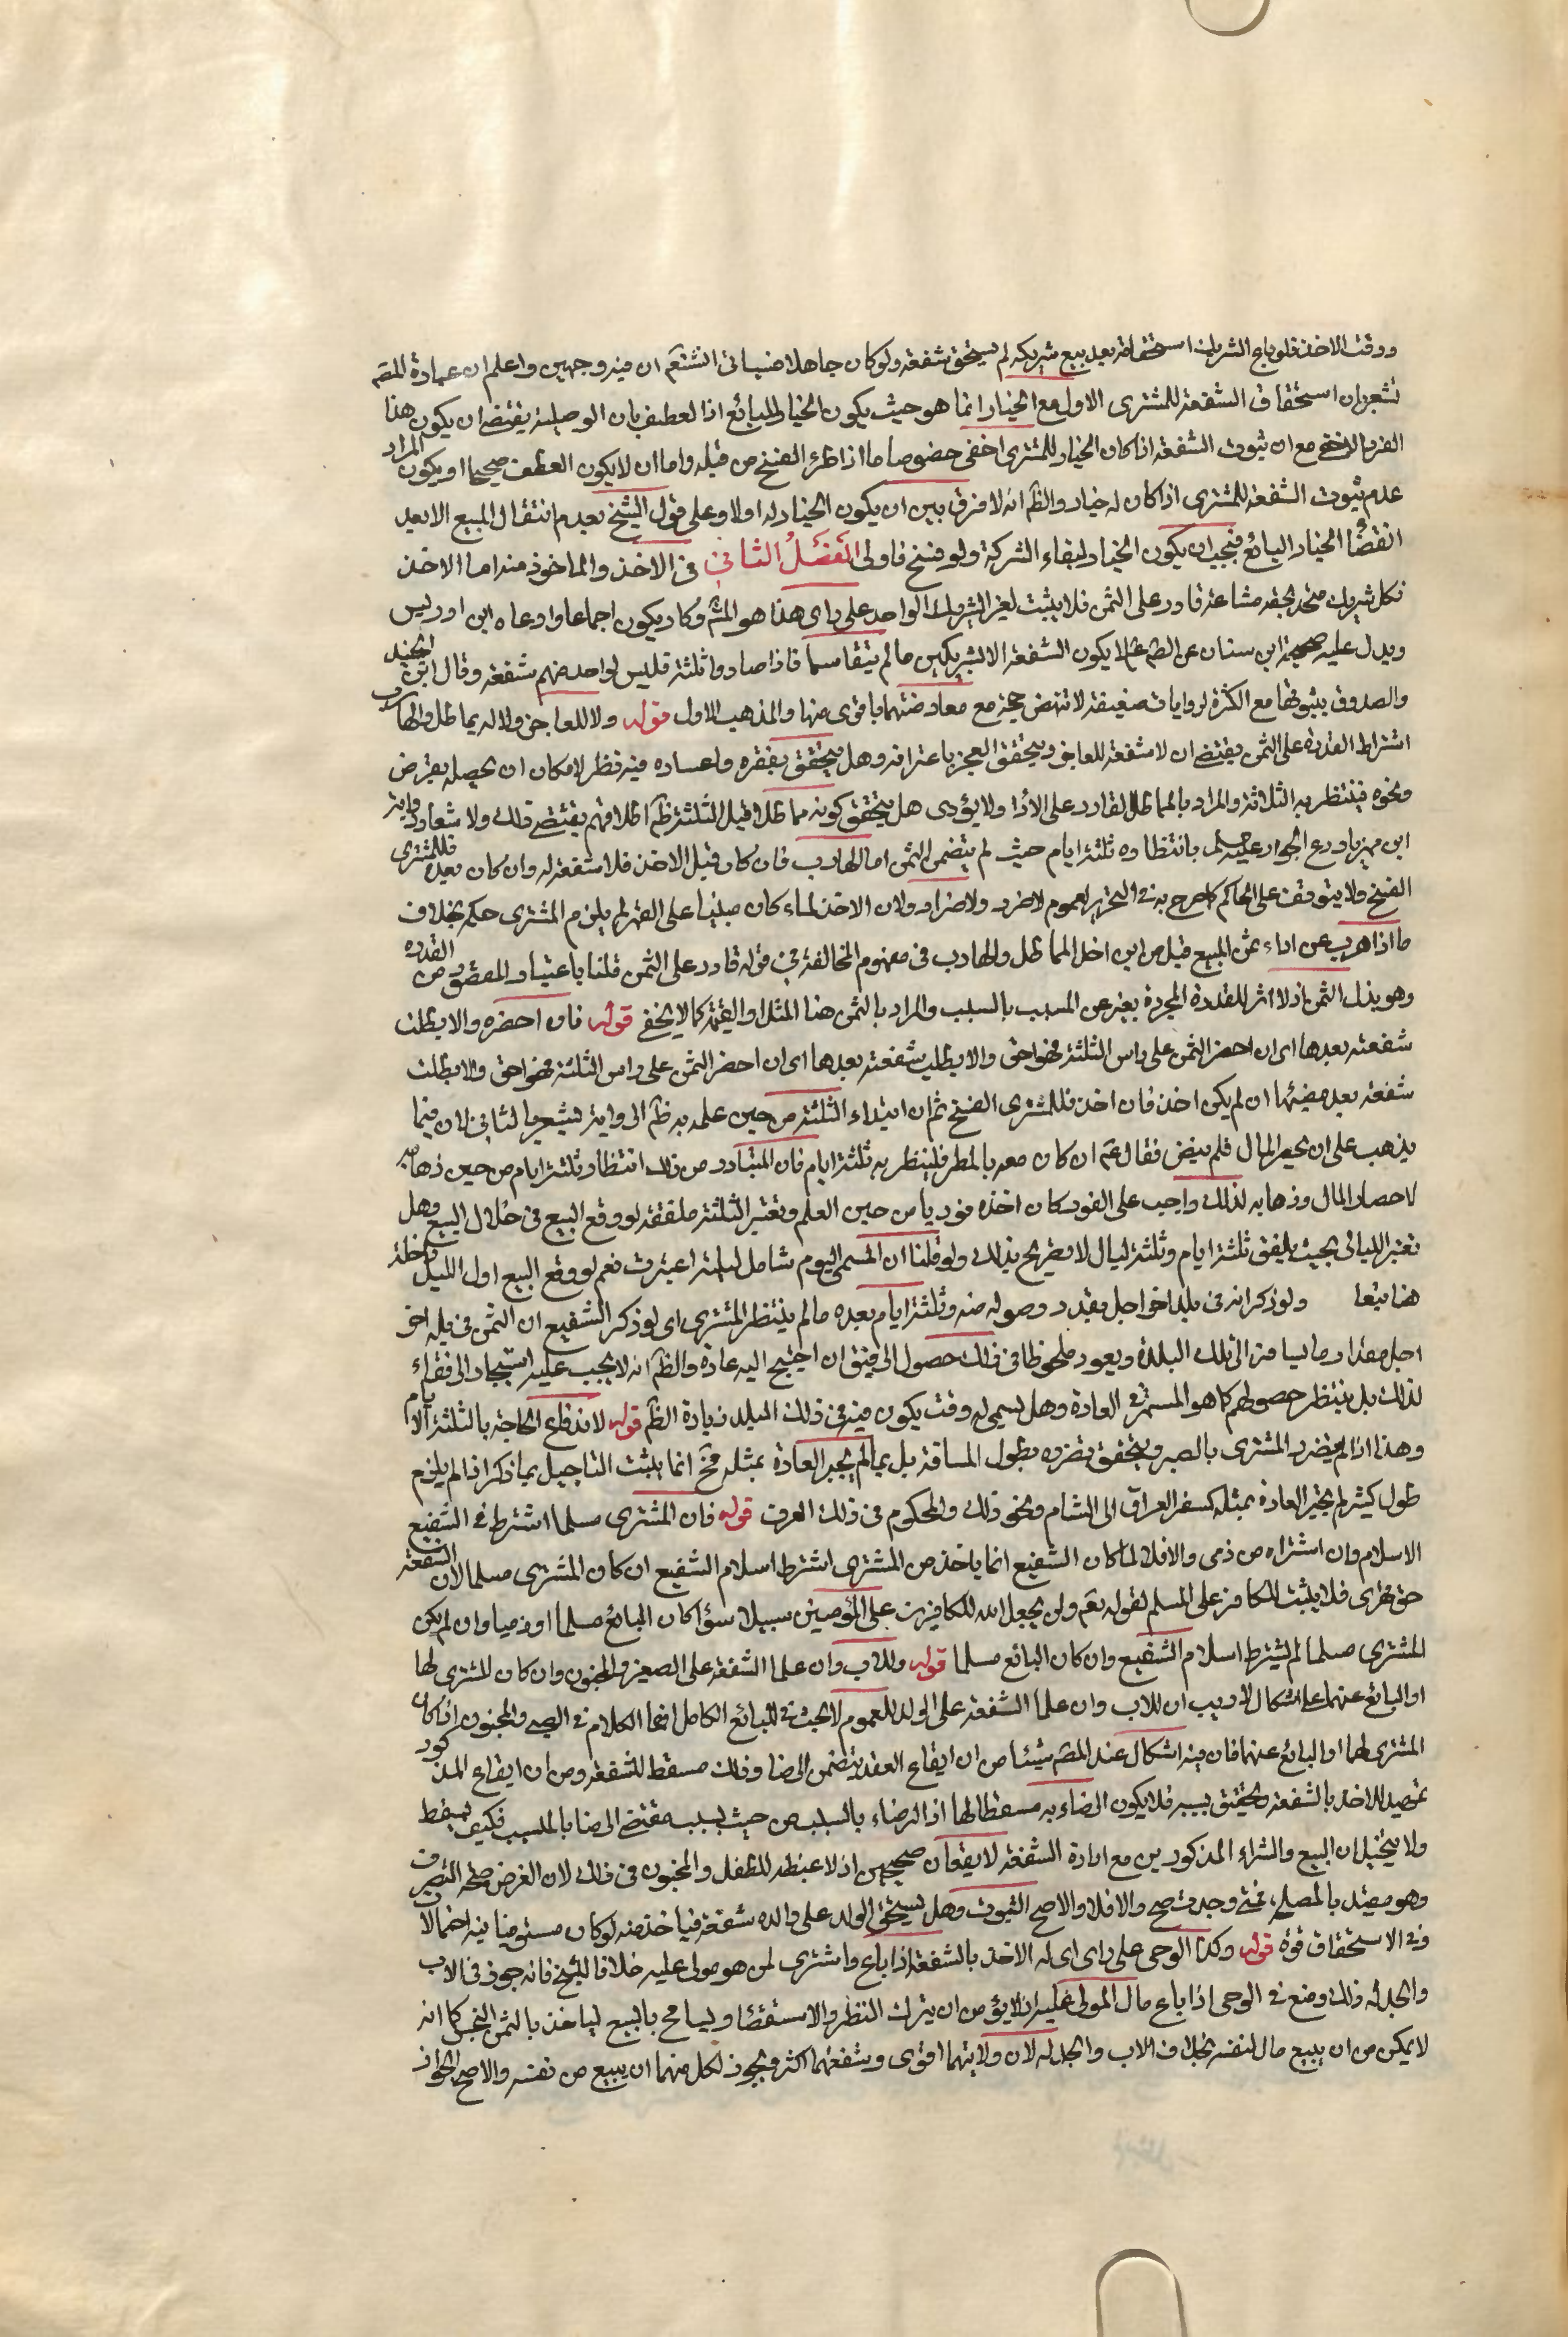 ووقت الاخذ فلو باع الشريك استحقاقه بعد بيع شريكه لم يستحق شفعة ولو كان جاهلا فسيأتى انشتعم ان فيه وجهين واعلم ان عبارة المص
تشعر بان استحقاق الشفعة للمشترى الاول مع الخيار انما هو حيث يكون الخيار للبائع اذ العطف بان الوصلية يقتضى ان يكون هذا
الفرد الاخفى مع ان ثبوت الشفعة اذا كان الخيار للمشترى اخفى خصوصا ما اذا طرء الفسخ من قبله واما ان لا يكون العطف صحيحا او يكون المراد
عدم ثبوت الشفعة للمشترى اذا كان له خيار والظم انه لا فرق بين ان يكون الخيار له او لا وعلى قول الشيخ بعدم انتقال المبيع الا بعد
انقضا الخيار البائع فيجب ان يكون الخيار لبقاء الشركة ولو فسخ فاولى الفصل الثانى فى الاخذ والماخوذ منه اما الاخذ
فكل شريك متحد بحصة مشاعة قادر على الثمن فلا يثبت لغير الشريك الواحد على راى هذا هو المشر وكاد يكون اجماعا وادعاه ابن ادريس
ويدل عليه صحيحة ابن سنان عن الصم ع لا يكون الشفعة الا لشريكين ما لم يتقاسما فاذا صاروا ثلثة فليس لواحد منهم شفعة وقال ابن الجنيد
والصدوق بثبوتها مع الكثرة لروايات ضعيفة لا تنهض حجة مع معارضتهما باقوى منها والمذهب الاول قوله ولا للعاجز ولا له يماطل والهارب
اشتراط القدرة على الثمن يقتضى ان لا شفعة للعاجز ويتحقق العجز باعترافه وهل يتحقق بفقره واعساره فيه نظر لامكان ان يحصله بقرض
ونحوه فينتظر به الثلاثة والمراد بالمماطل القادر على الادا ولا يؤدى هل يتحقق كونه مماطلا قبل الثلثة ظم اطلاقهم يقتضى ذلك ولا شعار رواية
ابن مهزيار ع الجواد عليه السلم بانتظاره ثلثة ايام حيث لم يتضمن الثمن اما الهارب فان كان قبل الاخذ فلا شفعة له وان كان بعده فللمشترى
الفسخ ولا يتوقف على الحاكم كما صرح به فى التحرير لعموم لا ضرر ولا ضرار ولان الاخذ لماء كان مبنيا على القهر لم يلزم المشترى حكمه بخلاف
ما اذا هرب عن اداء ثمن المبيع قيل من اين اخل المماطل والهارب فى مفهوم المخالفة فى قوله قادر على الثمن قلنا باعتبار المقصود من القدرة
وهو بذل الثمن اذ لا اثر للقدرة المجردة بغير عن المسبب بالسبب والمراد بالثمن هنا المثل او القيمة كما لا يخفى قوله فان احضره والا بطلت
شفعته بعدها اى ان احضر الثمن على راس الثلثة فهو احق والا بطلت شفعته بعدها اى ان احضر الثمن على راس الثلثة فهو احق والا بطلت
شفعته بعد مضيها ان لم يكن اخذ فان اخذ فللمشترى الفسخ ثم ان ابتداء الثلثة من حين علمه به ظم الى رواية يشعر بالثانى لان فيما
يذهب على ان يحضر المال فلم ينض فقال عم ان كان معه بالمصر فلينظر به ثلثة ايام فان المتبادر من ذلك انتظار ثلثة ايام من حين ذهابه
لاحضار المال وذهابه لذلك واجب على الفور كان اخذه فوريا من حين العلم وتعتبر الثلثة ملفقة لو وقع البيع فى خلال البيع وهل
تعتبر الليالى بحيث يلفق ثلثة ايام وثلثة ليال لا تصريح بذلك ولو قلنا ان المسمى اليوم شامل لليلة اعتبرت نعم لو وقع البيع اول الليل دخلت
هنا تبعا ولو ذكر انه فى بلد اخر اجل بقدر وصوله منه وثلثة ايام بعده ما لم ينتظر المشترى اى لو ذكر الشفيع ان الثمن فى بلد اخر
اجل مقدار ما يسافر الى تلك البلدة ويعود ملحوظا فى ذلك حصول الرفيق ان احتيج اليه عادة والظم انه لا يجب عليه استيجار الى فقراء
لذلك بل ينتظر حصولهم كما هو المستمر فى العادة وهل يسمى له وقت يكون فيه فى ذلك البلد زيادة الظم قوله لاندفاع الحاجة بالثلثة الايام
وهذا اذا لم يتضرر المشترى بالصبر ويتحقق تضرره بطول المسافة بل بما لم يجر العادة بمثله فح انما يثبت التاجيل بما ذكر اذا لم يلزم
طول كثير لم يجر العادة بمثله كسفر العراق الى الشام ونحو ذلك والمحكوم فى ذلك العرف قوله فان المشترى مسلما اشترط فى الشفيع
الاسلام وان اشتراه من ذمى والا فلا لما كان الشفيع انما ياخذ من المشترى اشترط اسلام الشفيع ان كان المشترى مسلما لان الشفعة
حق قهرى فلا يثبت للكافر على المسلم لقوله تعم ولن يجعل الله للكافرين على المؤمنين سبيلا سؤا كان البائع مسلما او ذميا وان لم يكن
المشترى مسلما لم يشترط اسلام الشفيع وان كان البائع مسلما قوله وللاب وان علما الشفعة على الصغير والمجنون وان كان المشترى لها
او البائع عنهما على اشكال لا ريب ان للاب وان علما الشفعة على الولد للعموم لا بحث فى البائع الكامل انما الكلام فى الصبى والمجنون اذا كان
المشترى لهما او البائع عنهما فان فيه اشكال عند المص ينشئا من ان ايقاع العقد يتضمن الرضا وذلك مسقط للشفعة ومن ان ايقاع المذكور
تمهيد للاخذ بالشفعة وتحقيق بسببه فلا يكون الرضاء به مسقطا لها اذ الرضاء بالسبب من حيث بسببه مقتضى الرضا بالمسبب فكيف يسقط
ولا يتخيل ان البيع والشراء المذكورين مع ارادة الشفعة لا يقعان صحيحين اذ لا غبطة للطفل والمجنون فى ذلك لان الغرض صحة التصرف
وهو مقيد بالمصلحة فمتى وجدت صح والا فلا والاصح الثبوت وهل يستحق الولد على والده شفعة فياخذ منه لو كان مستوفيا فيه احتمالان
وفى الاستحقاق قوة قوله وكذا الوصى على راى اى له الاخذ بالشفعة اذا باع واشترى لمن هو مولى عليه خلافا للشيخ فانه جوز فى الاب
والجد له ذلك ومنع فى الوصى اذا باع مال المولى عليه اذ لا يؤمن ان يترك النظر والاستقصا ويسامح بالبيع لياخذ بالثمن البخس كما انه
لا يمكن من ان يبيع مال لنفسه بخلاف الاب والجد له لان ولايتهما اقوى وشفعتهما اكثر ويجوز لكل منهما ان يبيع من نفسه والاصح الجواز